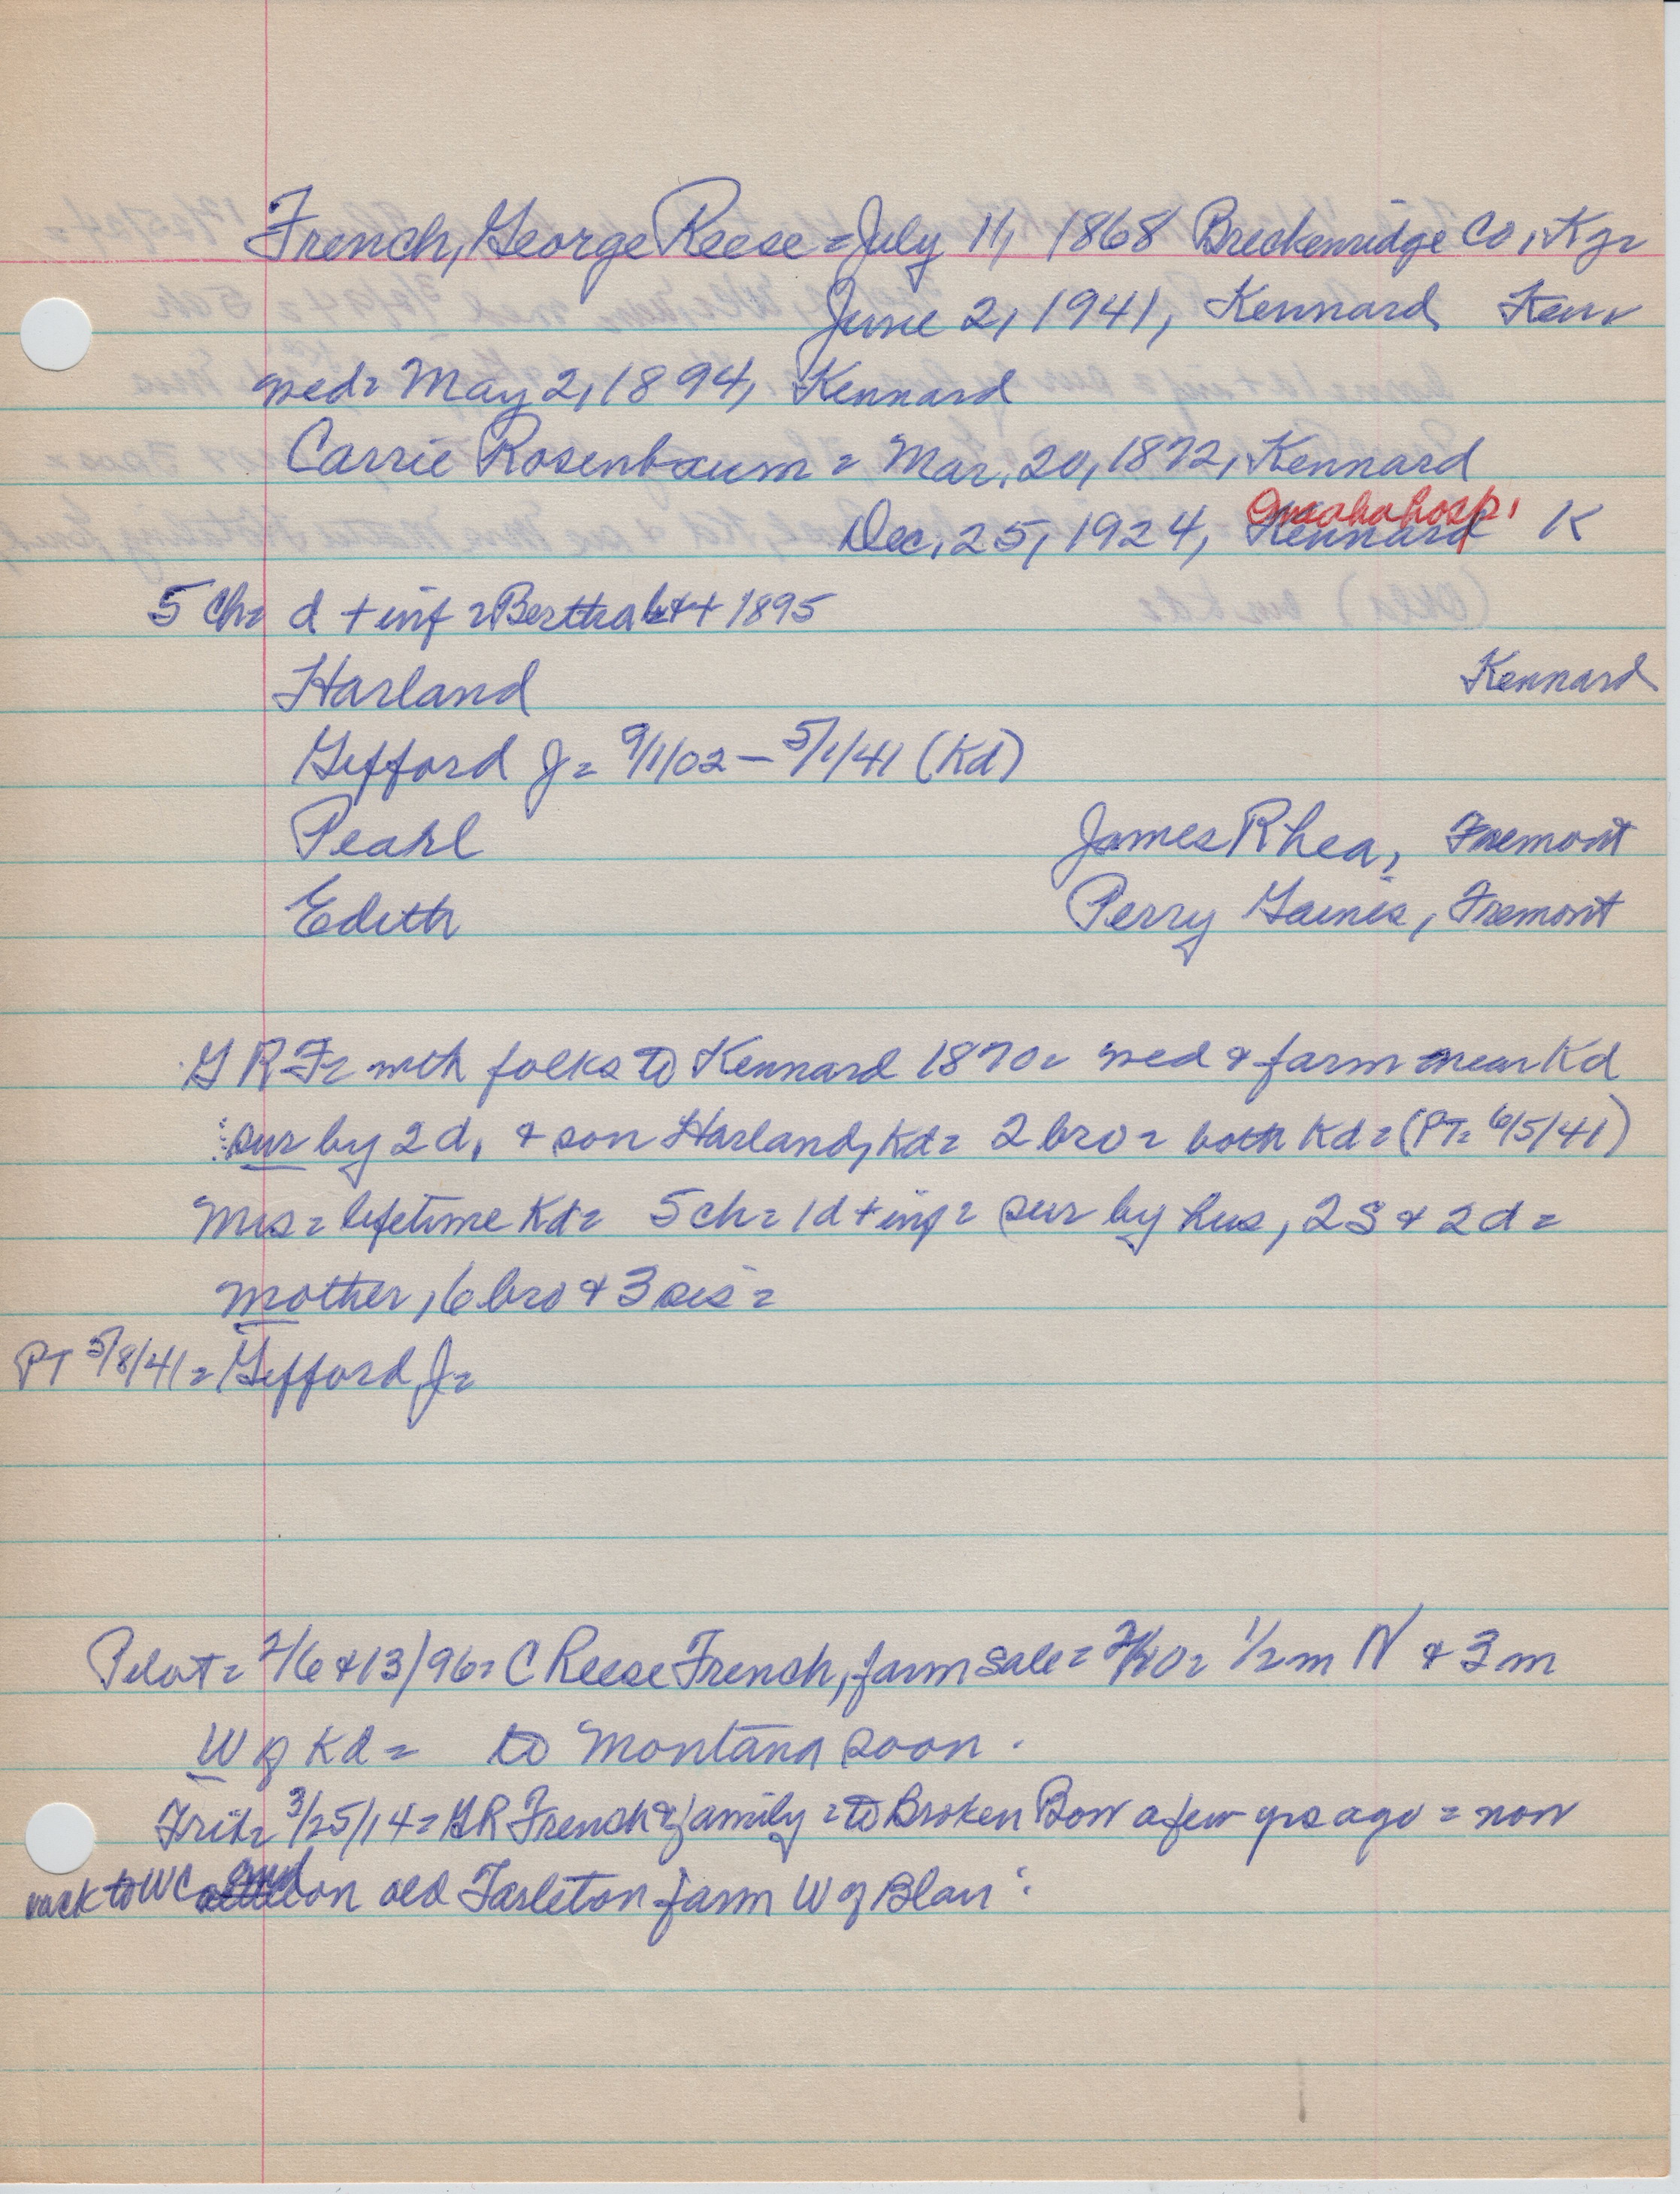 French, George Reese = July 11, 1868 Breckenridge Co, Ky =
June 2, 1941, Kennard Kenn
wed = May 2, 1894, Kennard
Carrie Rosenbaum = Mar. 20, 1872, Kennard
Omaha hosp.
Dec. 25, 1924, Kennard K
5 ch = d + inf = Bertha b++ 1895
Harland Kennard
Gifford J = 9/1/02 — 5/1/41 (Kd)
Pearl James Rhea, Fremont
Edith Perry Gaines, Fremont
G R F = with folks to Kennard 1870 = wed & farm near Kd
sur by 2 d, & son Harland, Kd = 2 bro = both Kd = (PT = 6/5/41)
Mrs = lifetime Kd = 5 ch = 1 d + inf = sur by hus, 2 S & 2 d =
mother, 6 bro & 3 sis =
PT 5/8/41 = Gifford J =
Pilot = 2/6 & 13/96 = C Reese French, farm sale = 2/20 = 1/2 m N & 3 m
W of Kd = to Montana soon.
Trib = 3/25/14 = G R French & family = to Broken Bow a few yrs ago = now
back to WC and on old Tarleton farm W of Blair